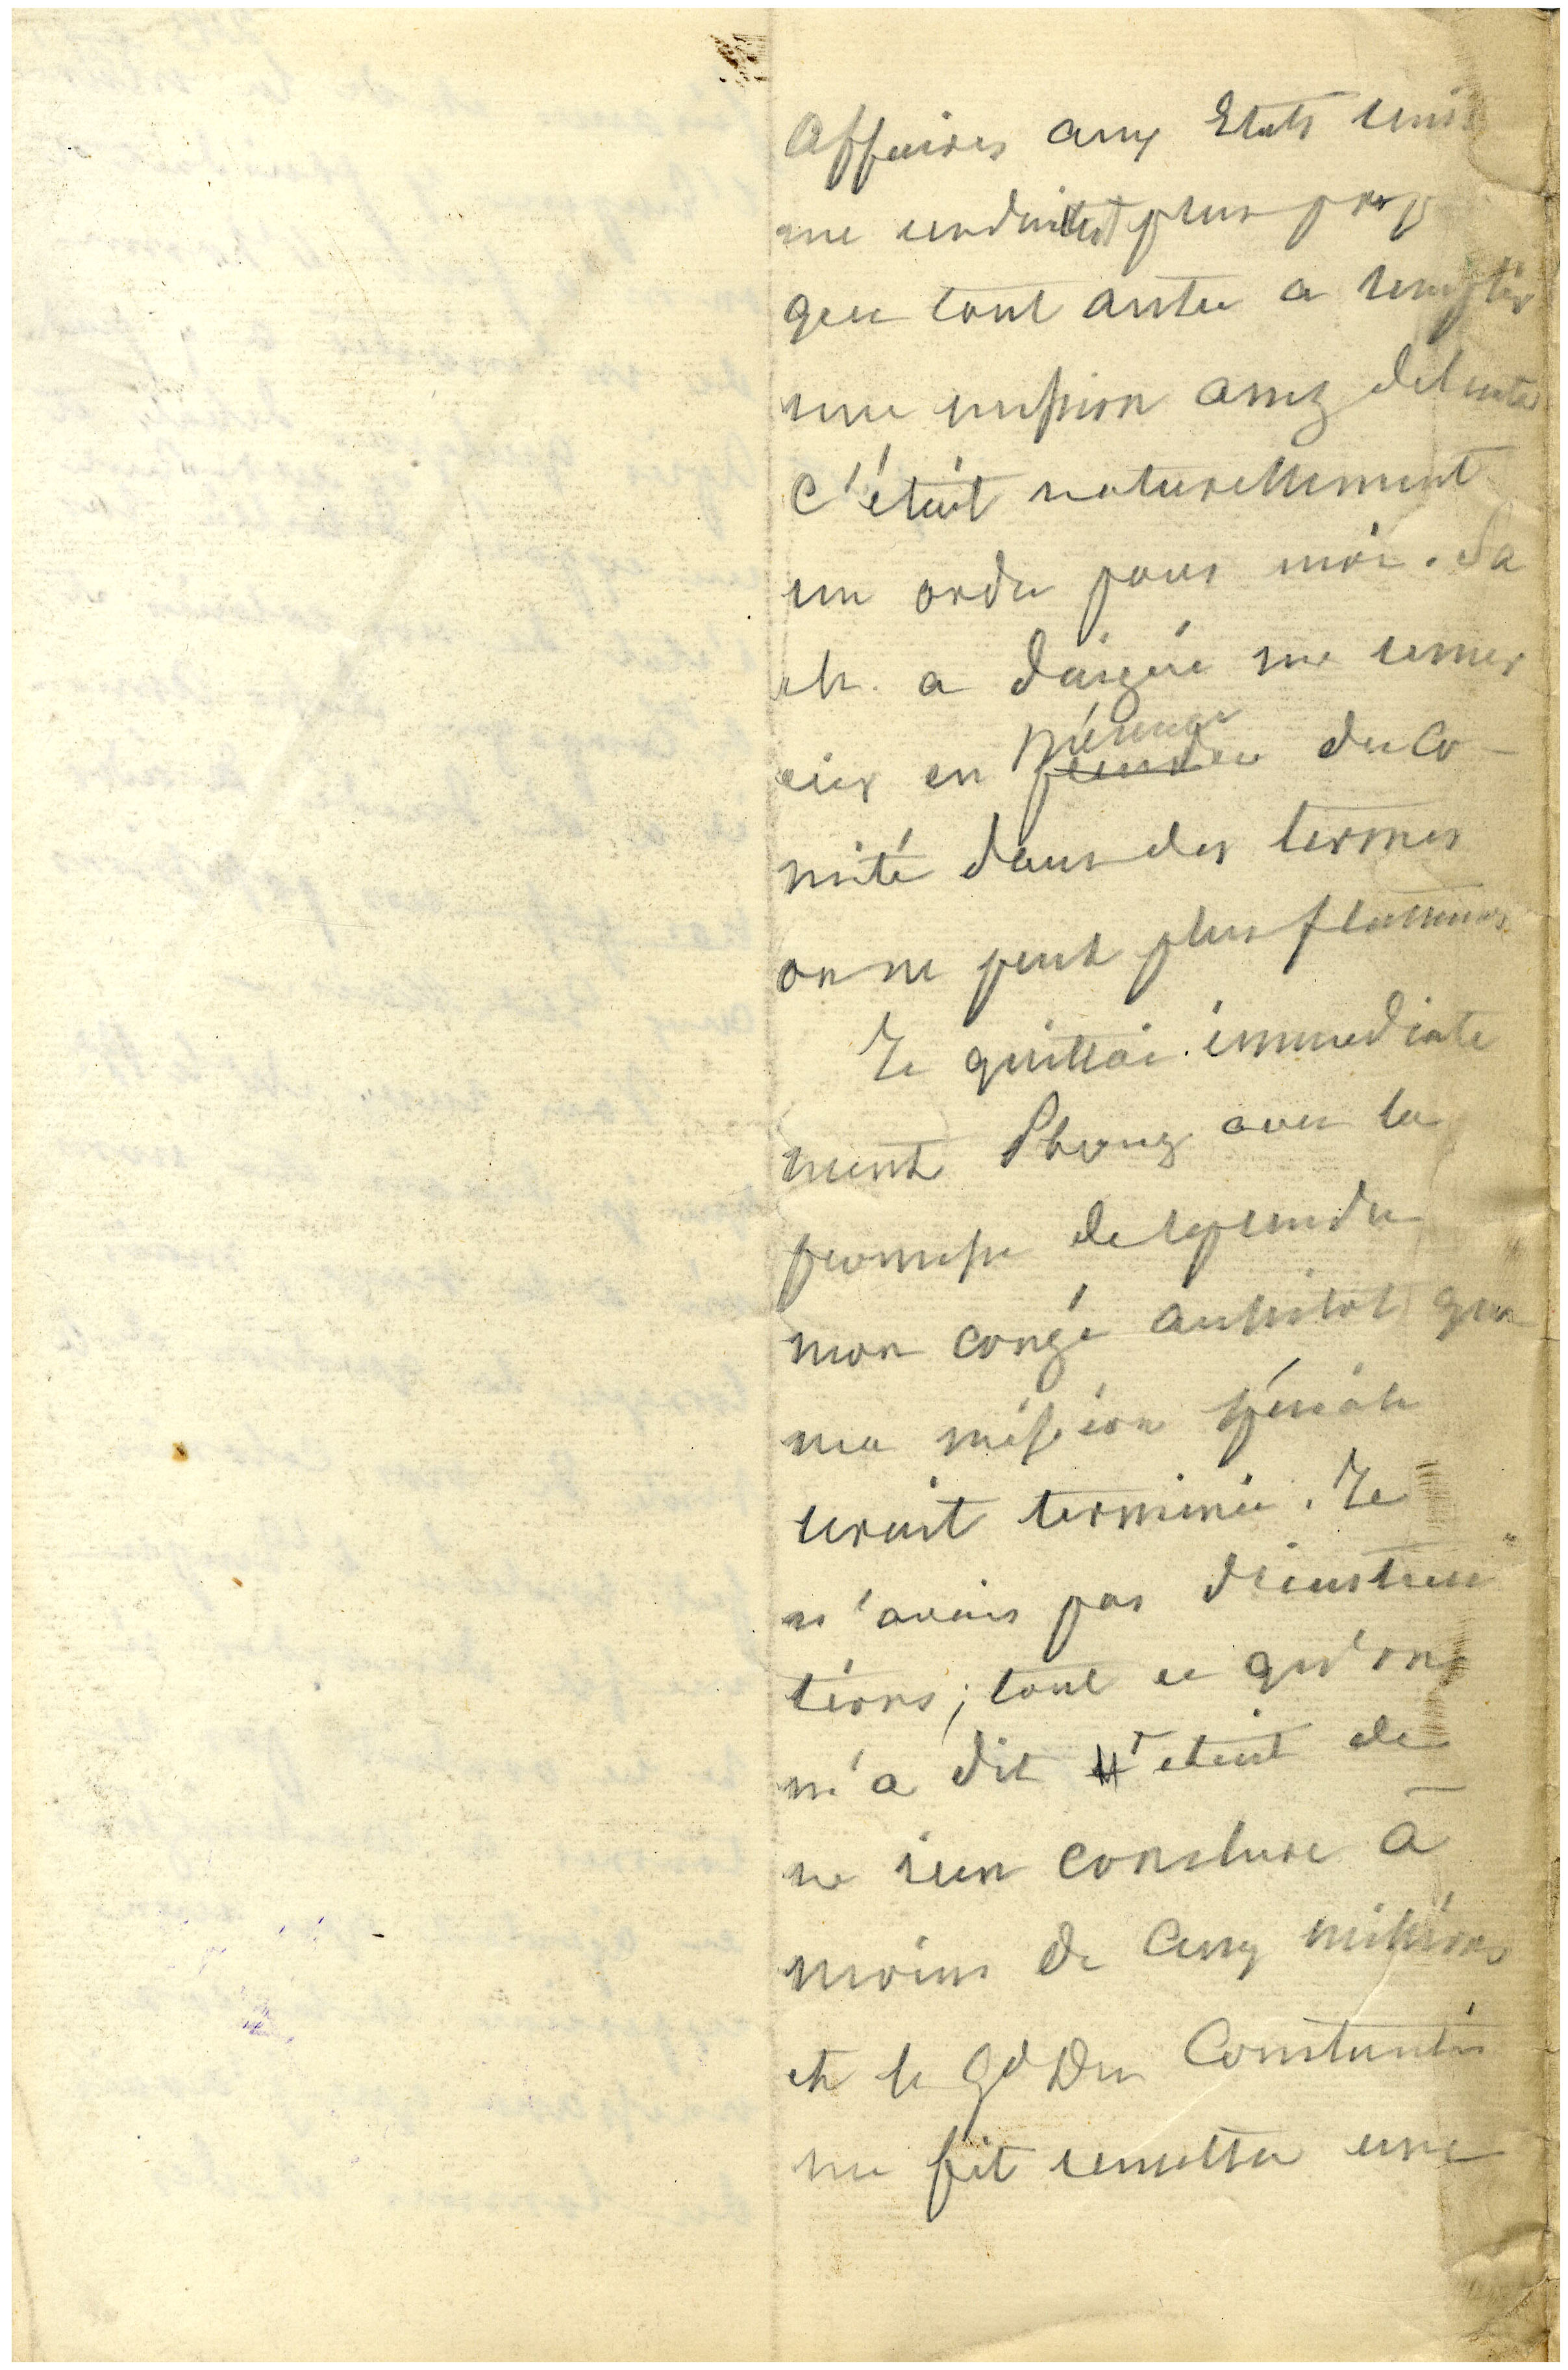 Affaires aux Etats Unis
me rendait plus prop
que tout autre a remplir
une mission assez delicate
C'était naturellement
un ordre pour moi. Sa
M. a daigné me remer
cier en présence du Co-
mité dans des termes
on ne peut plus flatteurs
Je quittai immediate
ment avec la
promesse de reprendre
mon congé aussitot que
ma mission spéciale
serait terminée. Je
n'avais pas d'instruc
tions; tout ce qu'on
m'a dit etait de
ne rien conclure à
moins de Cinq millions
et le Gd Duc Constantin
me fit remettre une